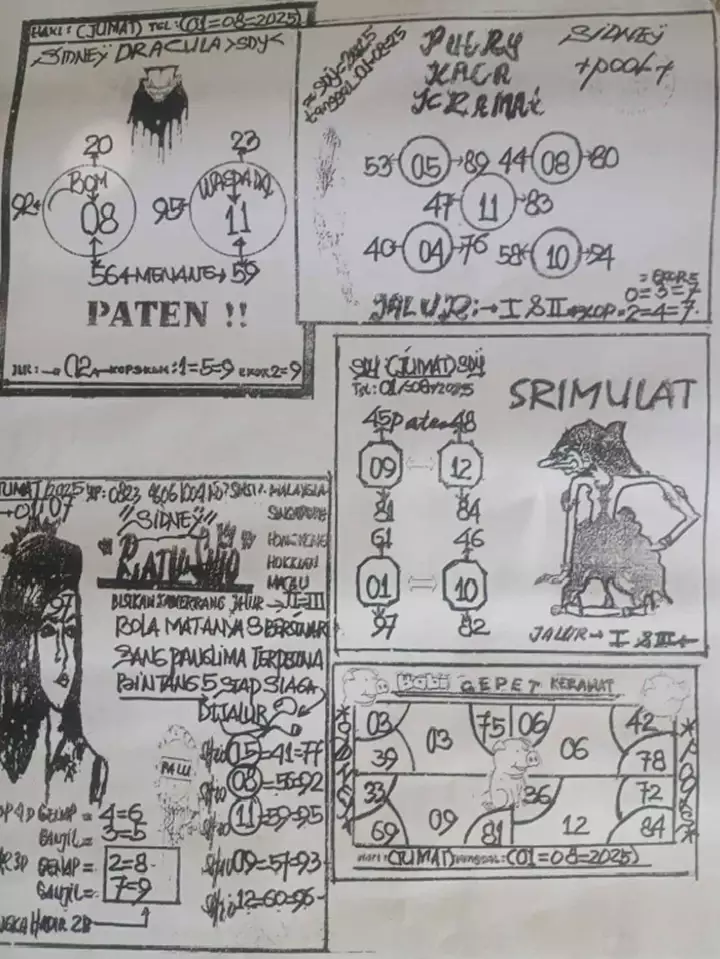 HARI: (JUMAT) TGL: (01=08=2025)
SIDNEY DRACULA >SDY<
20 23
BOM WASPADA
92 08 95 11
56 MENANG 59
PATEN !!
JLR: → 02 KOP 1=5=9 EKOR 2=9
= SDY=2025
tanggal 01=08=25
PUTRY
KACA
KRAMAt
SIDNEY
+POOL+
53 05 89 44 08 80
47 11 83
40 04 76 58 10 94
= EKOR =
0=3=7
JALUR: → I & II → KOP = 2=4=7
SDY (JUMAT) SDY
TGL: 01/08/2025
SRIMULAT
45 Paten 48
09 12
81 84
61 46
01 10
97 82
JALUR → I & III
JUMAT/2025 HP: 0823 MALAYSIA
07 SINGAPORE
"SIDNEY" HONGKONG
"RATU HOKKIAN
MACAU
97 BISIKAN JALUR → II=III
BOLA MATANYA BERSINAR
SANG PANGLIMA TERPESONA
BINTANG 5 SIAP SIAGA
DIJALUR 2
05=41=77
PALU
08=56=92
11=59=95
09=57=93
12=60=96
GENAP = 4=6
GANJIL = 3=5
GENAP = 2=8
GANJIL = 7=9
ANGKA HADIR 2D
BABI GEPET KERAMAT
03 03 75 06 06 42
39 78
33 09 36 12 72
69 81 84
*SIDNEY*
HARI: (JUMAT) TANGGAL: (01=08=2025)